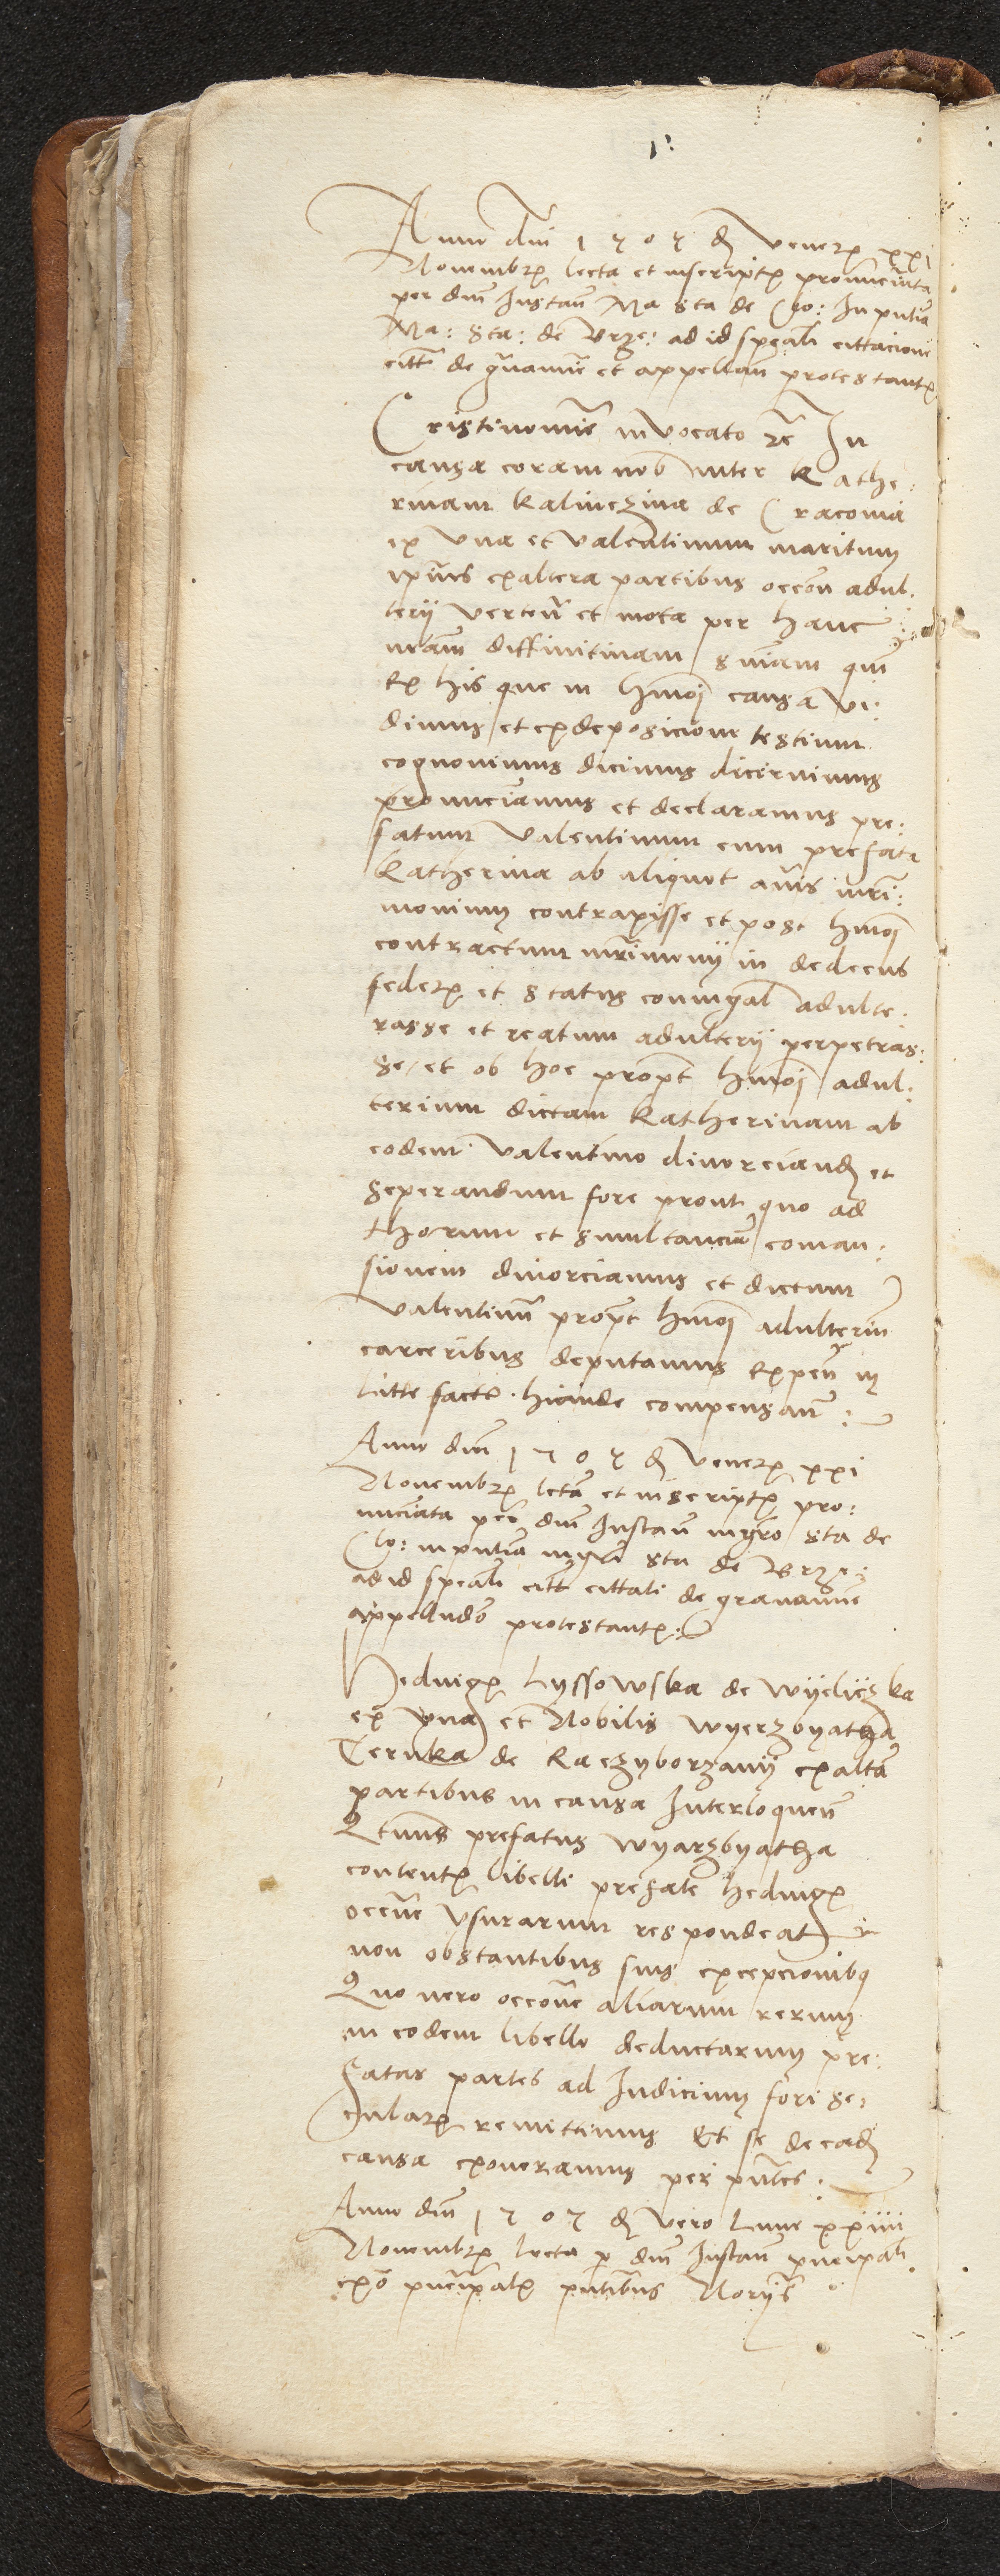 Anno dm̄ 1505 d Veneris xxi
Novembris lecta et inscriptis pronuncciata
per dm̄ Instan̄ Ma Sta de Clo: In pn̄tia
Ma: Sta: de Brze: ad id spēali cittacione
citt̄ de gravamīe et appellan̄ protestantis
Cristi nomīe invocato r̄c In
causa coram nob̄ inter Kathe:
rinam Kalinczina de Cracovia
ex una et Valentinum maritum
ip̄ius ex altera partibus occōn adul:
terii verten̄ et mota per hanc
nr̄am diffinitivam snīam qm̄
Ex his que in hmōi causa vi:
dimus et ex deposicione testium
cognovimus dicimus decernimus
pronunciamus et declaramus pre:
fatum Valentinum cum prefata
Katherina ab aliquot an̄is mr̄i:
monium contraxisse et post hmōi
contractum mr̄imonii in dedecus
federis et status coniugal̄ adulte:
rasse et reatum adulterii perpetras:
se / et ob hoc propt̄ hmōi adul:
terium dictam Katherinam ab
eodem Valentino divorciand et
seperandum fore prout quo ad
thorum et simultaneam coman:
sionem divorciamus et dictum
Valentinū propt̄ hmōi adulteriū
carceribus deputamus Expen̄ in
litte factis hincinde compensan̄:
Anno dm̄ 1505 d Veneris xxi
Novembris lecta et inscriptis pro:
nunciata per dm̄ Instan̄ mgr̄o Sta de
Clo: in pn̄tia mgr̄i Sta de Brze:
ad id spēali citt̄ cittati de gravamīe
appellndō protestantis:
Hedvigis Lyssowska de Wyeliczka
ex una et Nobilis Wyerzbyatha
Czernka de Raczyborzany ex alt̄a
partibus in causa Interloquen̄
Q̄tenus prefatus Wyarzbyatha
contentis libelli prefate Hedvigis
occōne Usurarum respondeat
non obstantibus suis excepcionibus
Quo vero occōne aliarum rerum
in eodem libello deductarum pre:
fatas partes ad Iudicium fori se:
cularis remittimus Et se de ead
causa exoneramus per pn̄tes:
Anno dm̄ 1505 d vero Lune xxiiii
Novembris lecta p dm̄ Instan̄ principali
principalis pn̄tibus Noriis